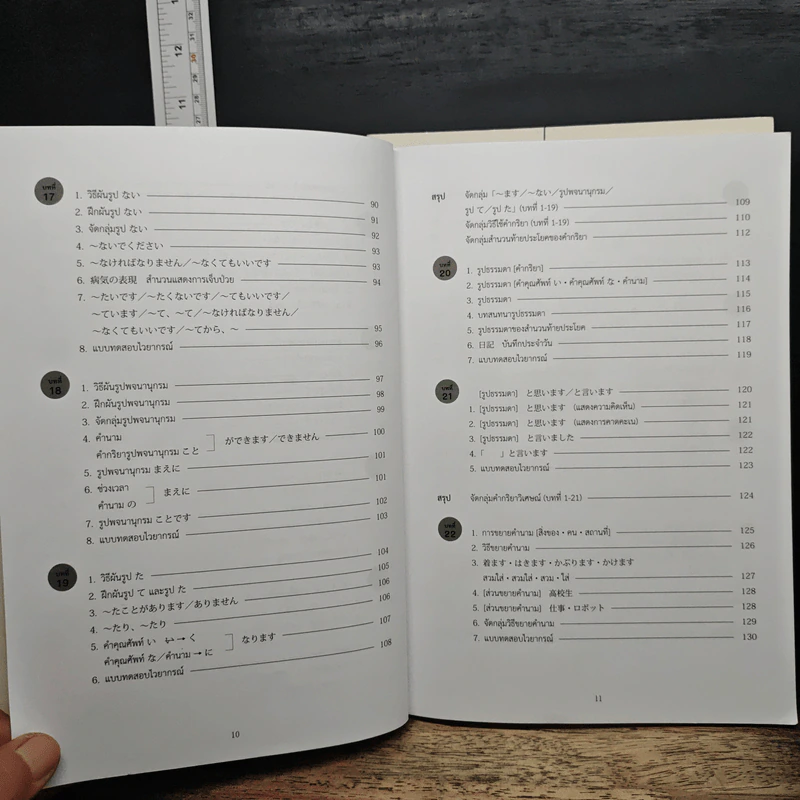 12
11
30
29
28
27
บทที่
17
1. วิธีผันรูป ない 90
2. ฝึกผันรูป ない 91
3. จัดกลุ่มรูป ない 92
4. ～ないでください 93
5. ～なければなりません／～なくてもいいです 93
6. 病気の表現 สำนวนแสดงการเจ็บป่วย 94
7. ～たいです／～たくないです／～てもいいです／
～ています／～て、～て／～なければなりません／
～なくてもいいです／～てから、～ 95
8. แบบทดสอบไวยากรณ์ 96
บทที่
18
1. วิธีผันรูปพจนานุกรม 97
2. ฝึกผันรูปพจนานุกรม 98
3. จัดกลุ่มรูปพจนานุกรม 99
4. คำนาม
คำกริยารูปพจนานุกรม こと ができます／できません 100
5. รูปพจนานุกรม まえに 101
6. ช่วงเวลา
คำนาม の まえに 101
7. รูปพจนานุกรม ことです 102
8. แบบทดสอบไวยากรณ์ 103
บทที่
19
1. วิธีผันรูป た 104
2. ฝึกผันรูป て และรูป た 105
3. ～たことがあります／ありません 106
4. ～たり、～たり 106
5. คำคุณศัพท์ い い→く
คำคุณศัพท์ な／คำนาม → に なります 107
6. แบบทดสอบไวยากรณ์ 108
10
สรุป จัดกลุ่ม「～ます／～ない／รูปพจนานุกรม／
รูป て／รูป た」(บทที่ 1-19) 109
จัดกลุ่มวิธีใช้คำกริยา (บทที่ 1-19) 110
จัดกลุ่มสำนวนท้ายประโยคของคำกริยา 112
บทที่
20
1. รูปธรรมดา [คำกริยา] 113
2. รูปธรรมดา [คำคุณศัพท์ い・คำคุณศัพท์ な・คำนาม] 114
3. รูปธรรมดา 115
4. บทสนทนารูปธรรมดา 116
5. รูปธรรมดาของสำนวนท้ายประโยค 117
6. 日記 บันทึกประจำวัน 118
7. แบบทดสอบไวยากรณ์ 119
บทที่
21
[รูปธรรมดา] と思います／と言います 120
1. [รูปธรรมดา] と思います (แสดงความคิดเห็น) 121
2. [รูปธรรมดา] と思います (แสดงการคาดคะเน) 121
3. [รูปธรรมดา] と言いました 122
4.「 」と言います 122
5. แบบทดสอบไวยากรณ์ 123
สรุป จัดกลุ่มคำกริยาวิเศษณ์ (บทที่ 1-21) 124
บทที่
22
1. การขยายคำนาม [สิ่งของ・คน・สถานที่] 125
2. วิธีขยายคำนาม 126
3. 着ます・はきます・かぶります・かけます
สวมใส่・สวมใส่・สวม・ใส่ 127
4. [ส่วนขยายคำนาม] 高校生 128
5. [ส่วนขยายคำนาม] 仕事・ロボット 128
6. จัดกลุ่มวิธีขยายคำนาม 129
7. แบบทดสอบไวยากรณ์ 130
11